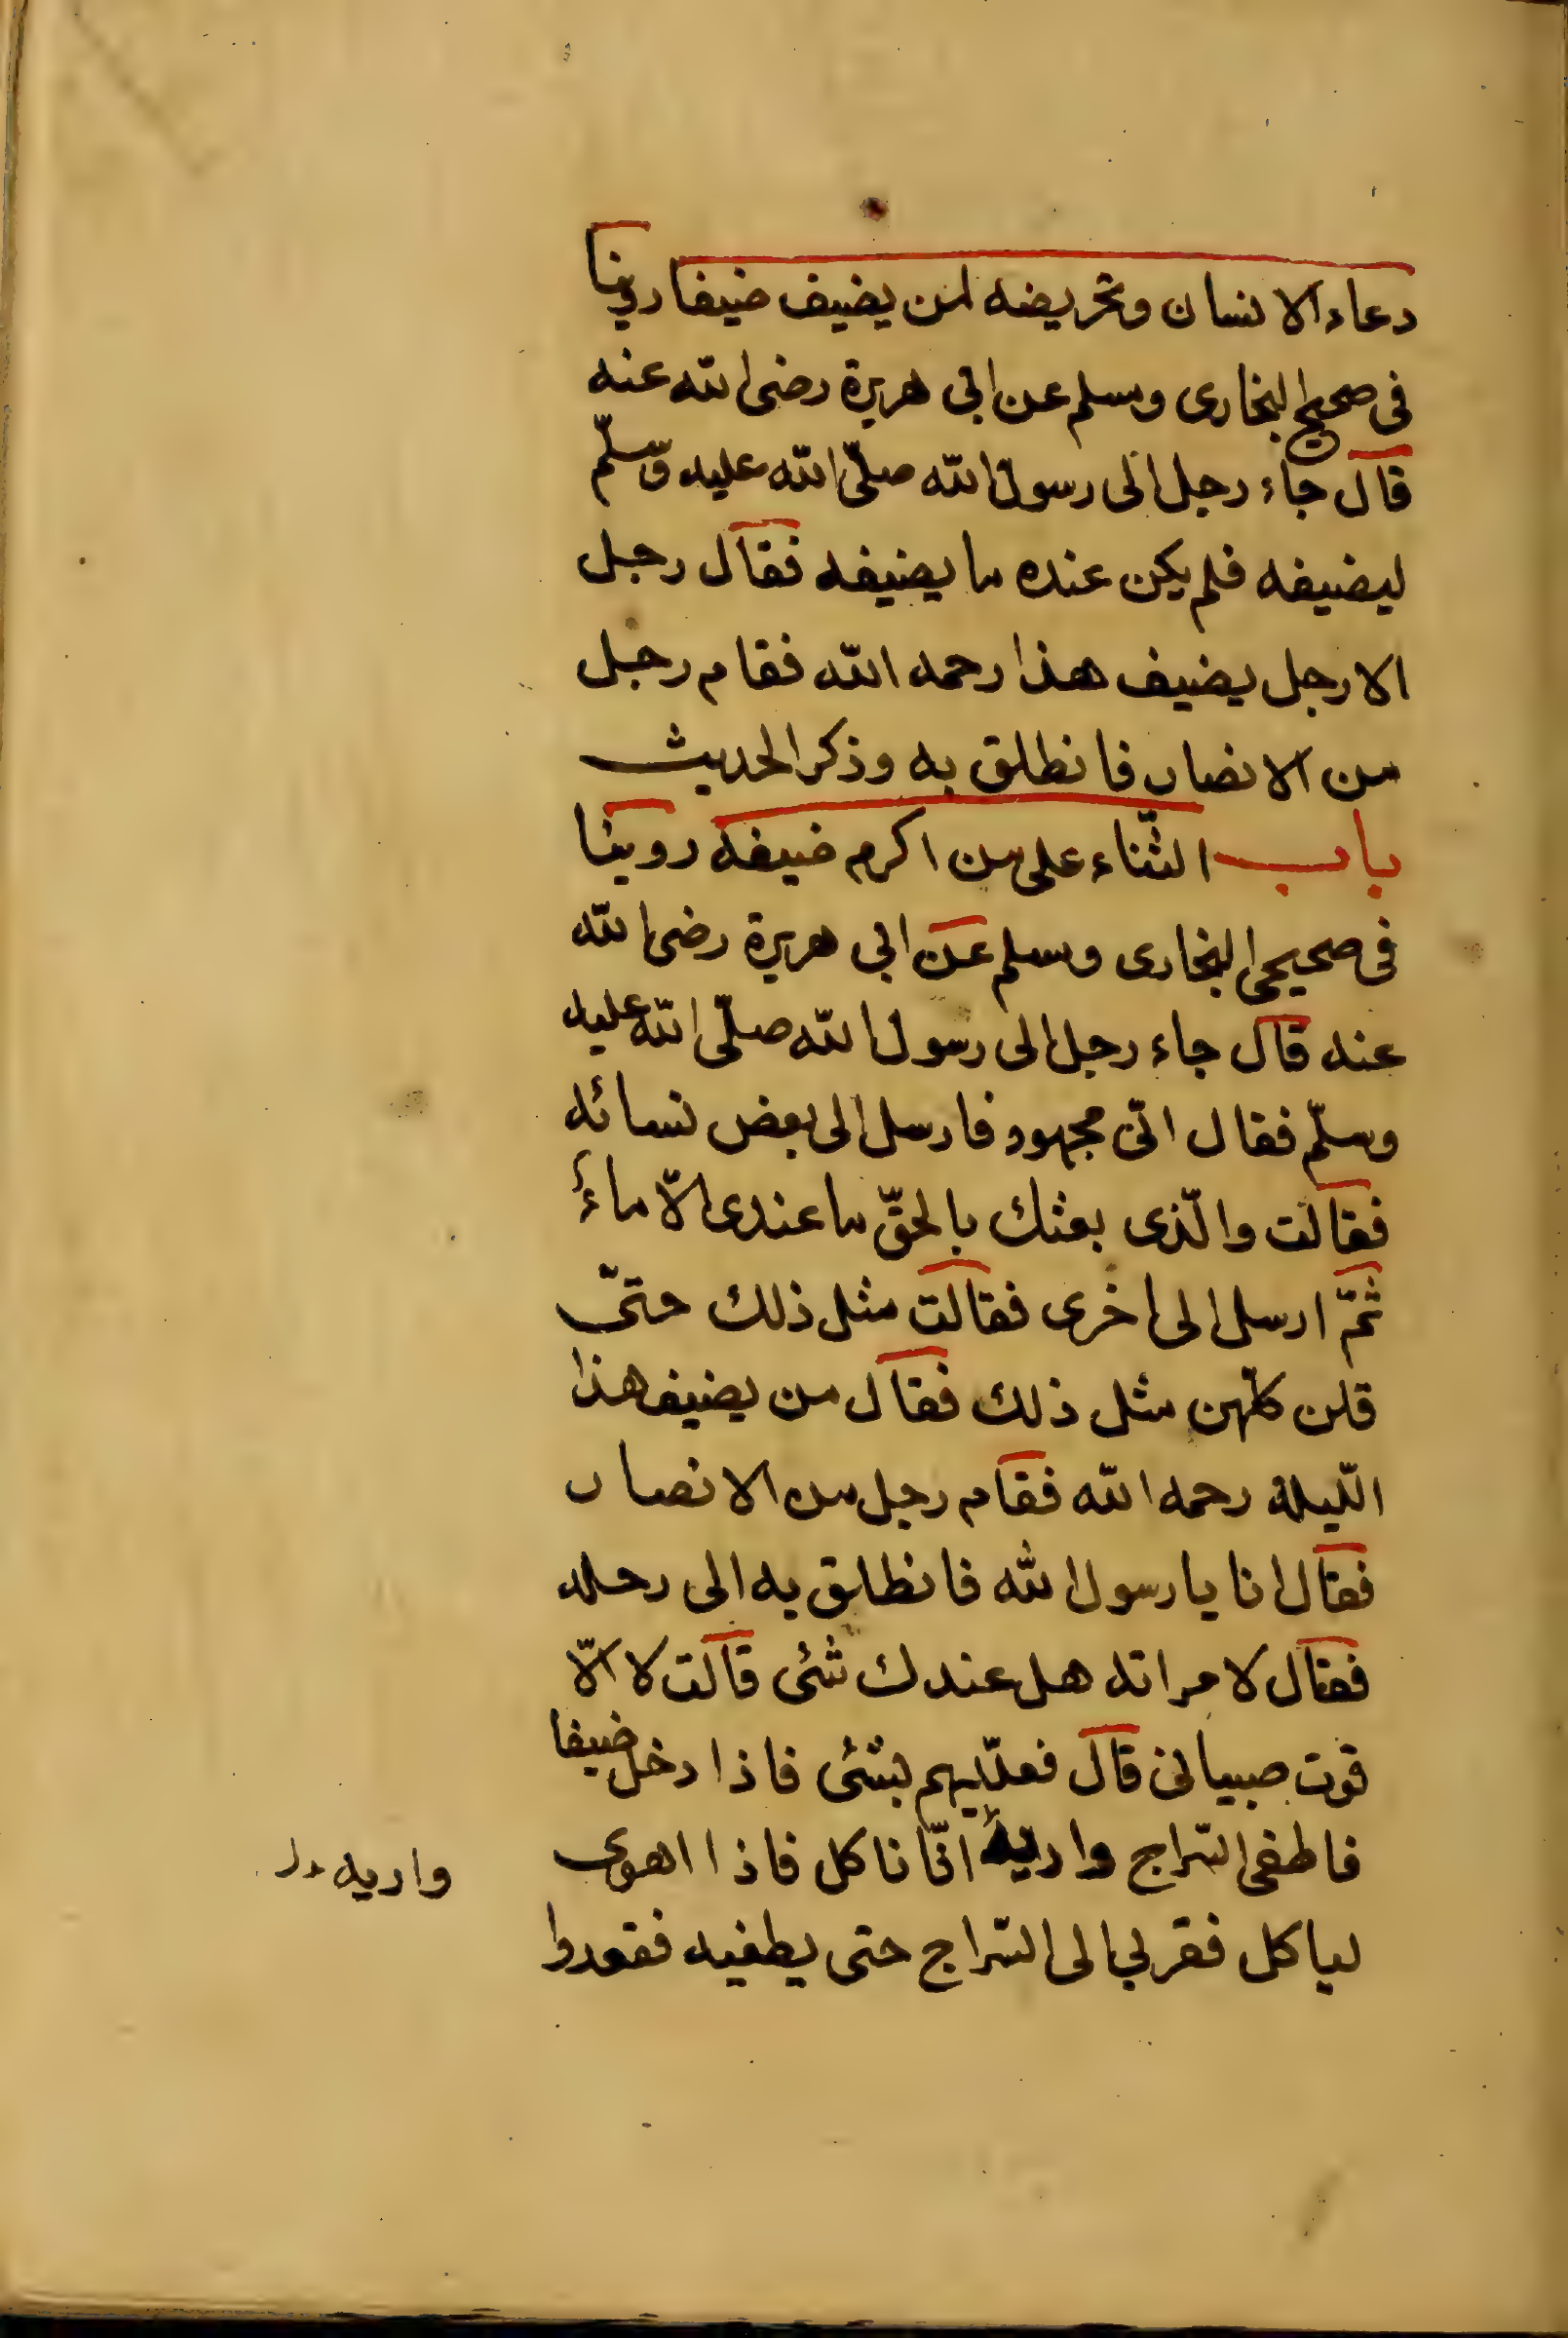 دعاء الانسان وتحريضه لمن يضيف ضيفا روينا
فى صحيح البخارى ومسلم عن ابى هريرة رضى الله عنه
قال جاء رجل الى رسول الله صلّى الله عليه وسلّم
ليضيفه فلم يكن عنده ما يضيفه فقال رجل
الا رجل يضيف هذا رحمه الله فقام رجل
من الانصار فانطلق به وذكر الحديث
باب الثّناء على من اكرم ضيفه روينا
فى صحيحى البخارى ومسلم عن ابى هريرة رضى الله
عنه قال جاء رجل الى رسول الله صلّى الله عليه
وسلّم فقال انّى مجهود فارسل الى بعض نسائه
فقالت والّذى بعثك بالحقّ ما عندى الاّ ماءٌ
ثمّ ارسل الى اخرى فقالت مثل ذلك حتىّ
قلن كلّهن مثل ذلك فقال من يضيف هذا
اللّيلة رحمه الله فقام رجل من الانصار
فقال انا يا رسول الله فانطلق به الى رحله
فقال لامراته هل عندك شئى قالت لا الاّ
قوت صبيانى قال فعلّليهم بشئى فاذا دخل ضيفا
فاطفى السّراج واريه انّا ناكل فاذا اهوى
لياكل فقربى الى السّراج حتى يطفيه فقعدوا
واريه